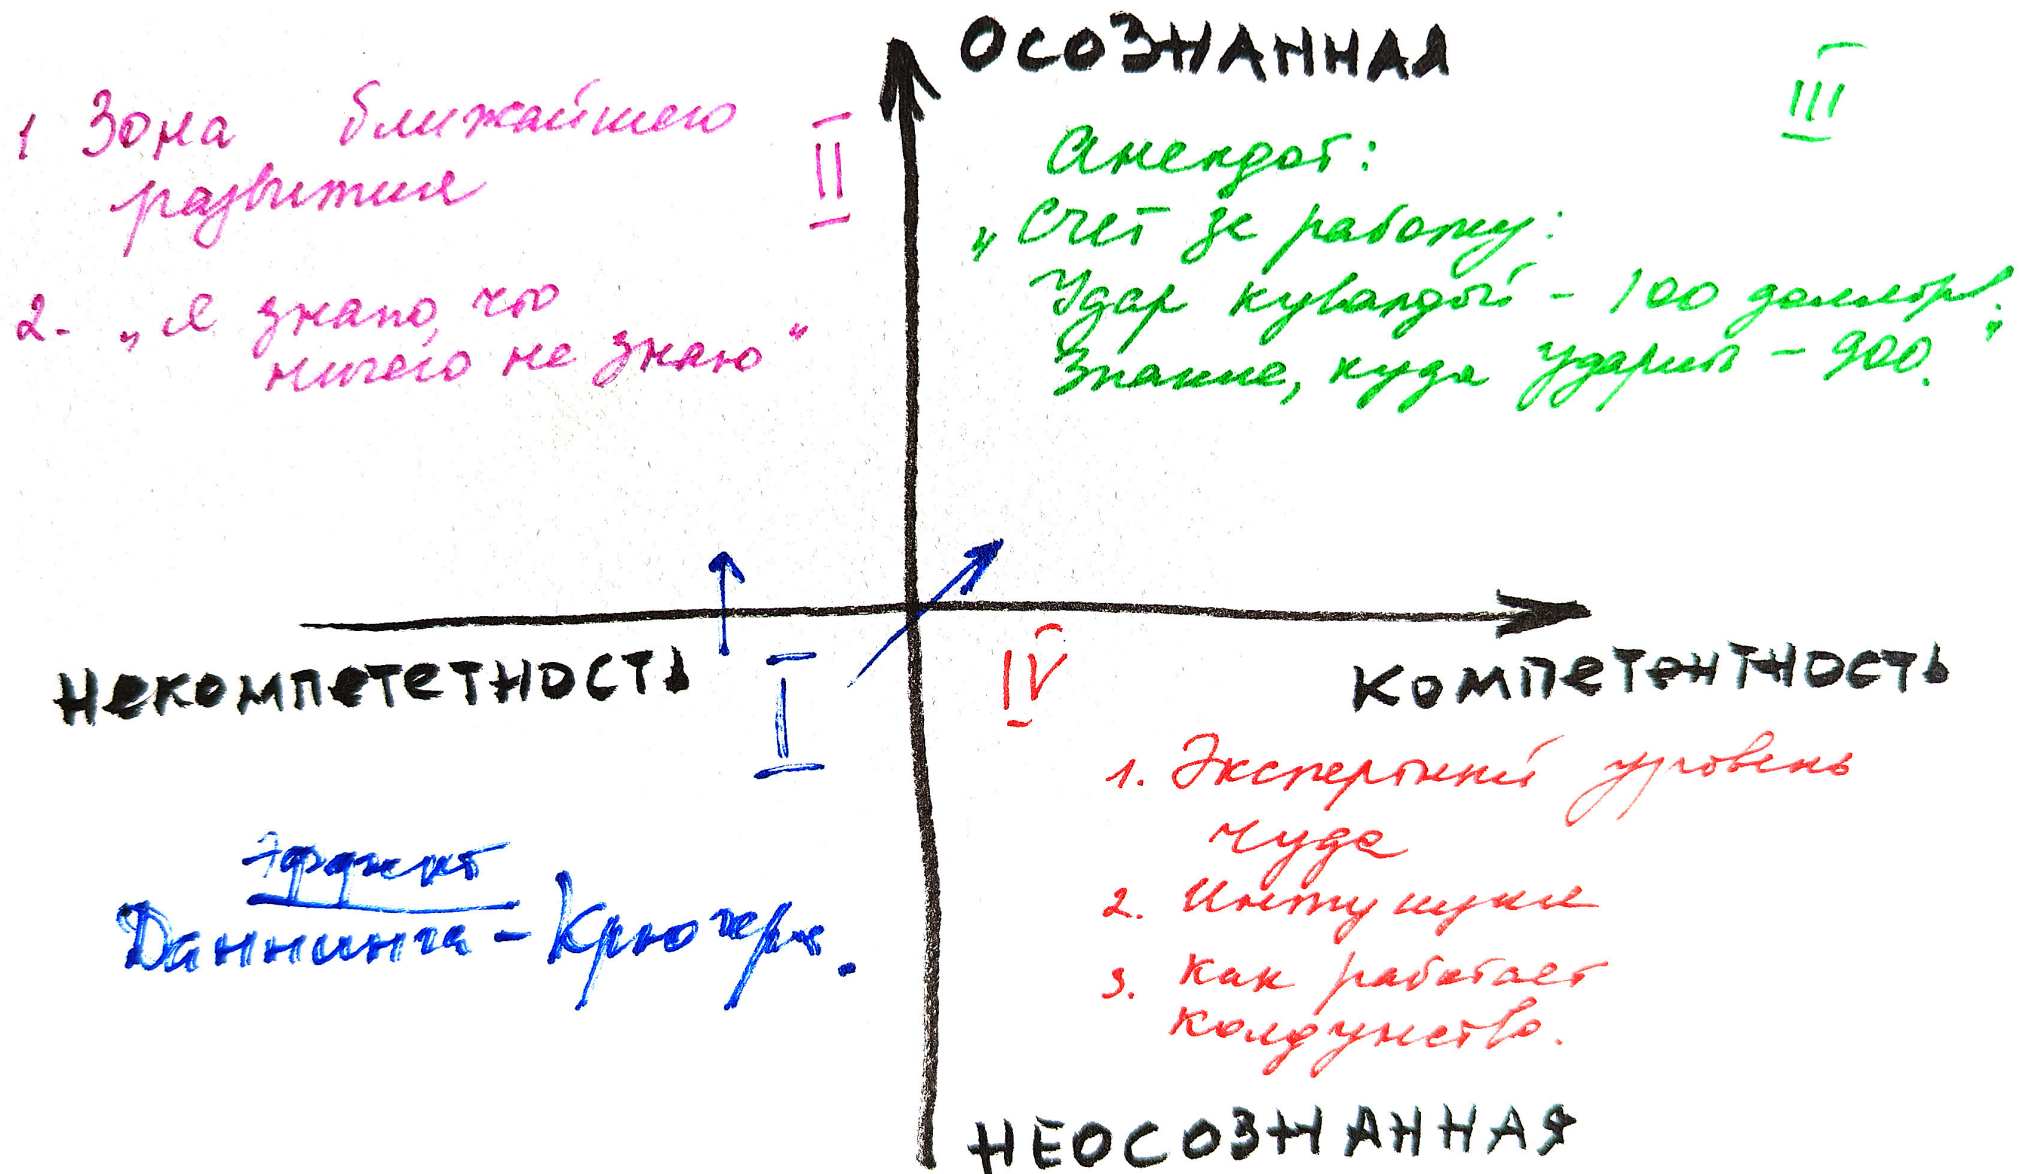 ОСОЗНАННАЯ
1 Зона ближайшего
развития
II
2. „Я знаю, что
ничего не знаю“
III
Анекдот:
„Счет за работу:
Удар кувалдой – 100 долларов.
Знание, куда ударить – 900.“
НЕКОМПЕТЕТНОСТЬ
I
IV
КОМПЕТЕНТНОСТЬ
Эффект
Даннинга – Крюгера.
1. Экспертный уровень
чуда
2. Интуиция
3. Как работает
колдунство.
НЕОСОЗНАННАЯ